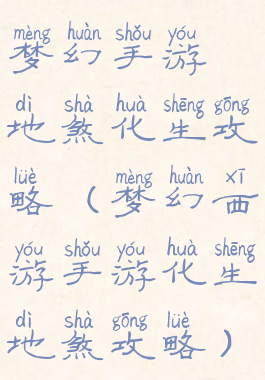 mèng huàn shǒu yóu
梦幻手游
dì shà huà shēng gōng
地煞化生攻
lüè mèng huàn xī
略（梦幻西
yóu shǒu yóu huà shēng
游手游化生
dì shà gōng lüè
地煞攻略）